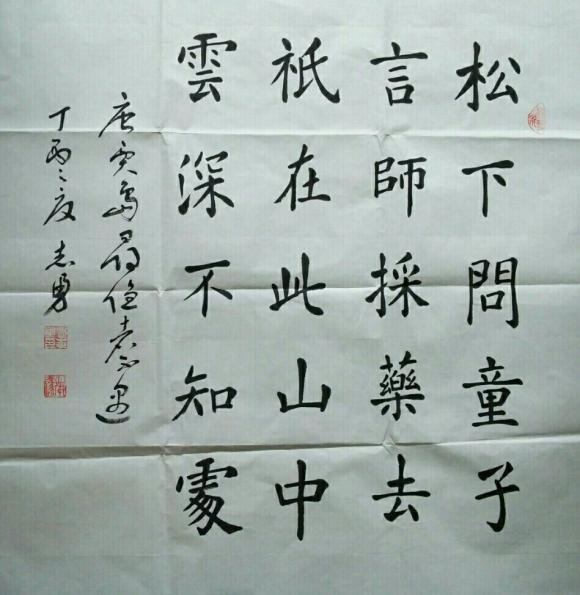 松下問童子
言師採藥去
祇在此山中
雲深不知處
唐賈島尋隱者不遇
丁酉之夏 志勇